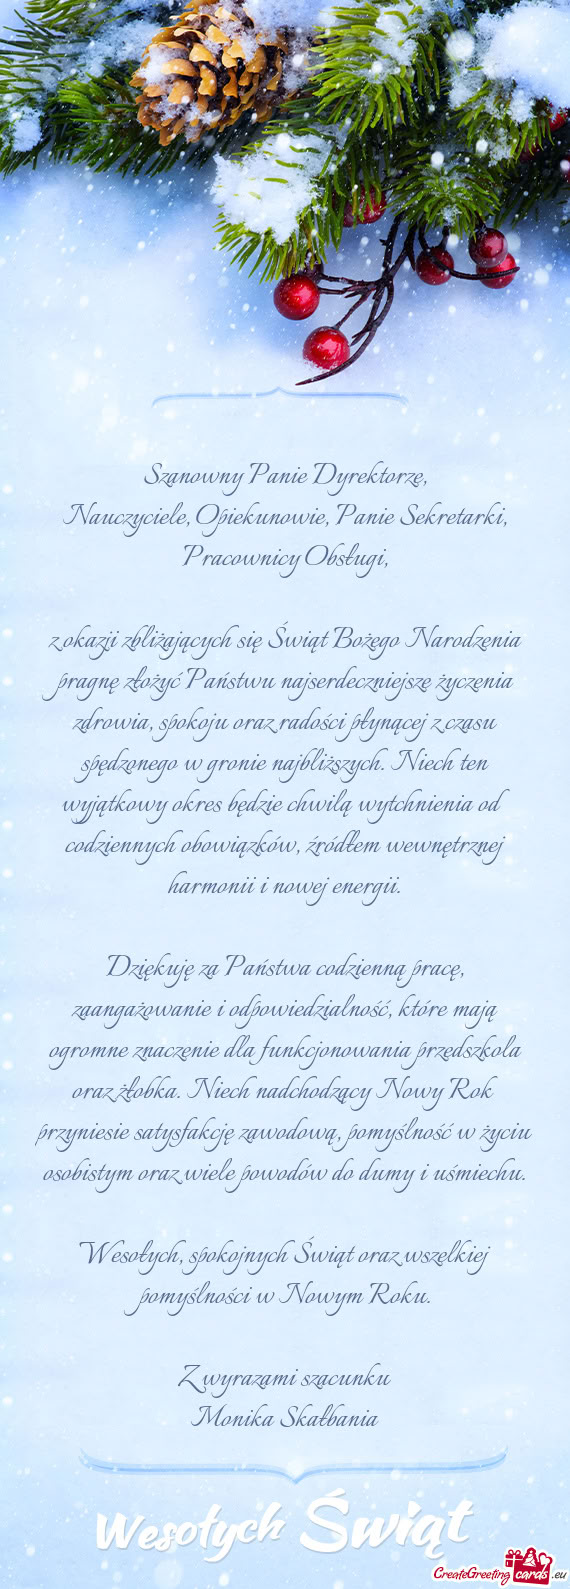 Szanowny Panie Dyrektorze,
Nauczyciele, Opiekunowie, Panie Sekretarki,
Pracownicy Obsługi,
z okazji zbliżających się Świąt Bożego Narodzenia
pragnę złożyć Państwu najserdeczniejsze życzenia
zdrowia, spokoju oraz radości płynącej z czasu
spędzonego w gronie najbliższych. Niech ten
wyjątkowy okres będzie chwilą wytchnienia od
codziennych obowiązków, źródłem wewnętrznej
harmonii i nowej energii.
Dziękuję za Państwa codzienną pracę,
zaangażowanie i odpowiedzialność, które mają
ogromne znaczenie dla funkcjonowania przedszkola
oraz żłobka. Niech nadchodzący Nowy Rok
przyniesie satysfakcję zawodową, pomyślność w życiu
osobistym oraz wiele powodów do dumy i uśmiechu.
Wesołych, spokojnych Świąt oraz wszelkiej
pomyślności w Nowym Roku.
Z wyrazami szacunku
Monika Skałbania
Wesołych Świąt
CreateGreetingcards.eu